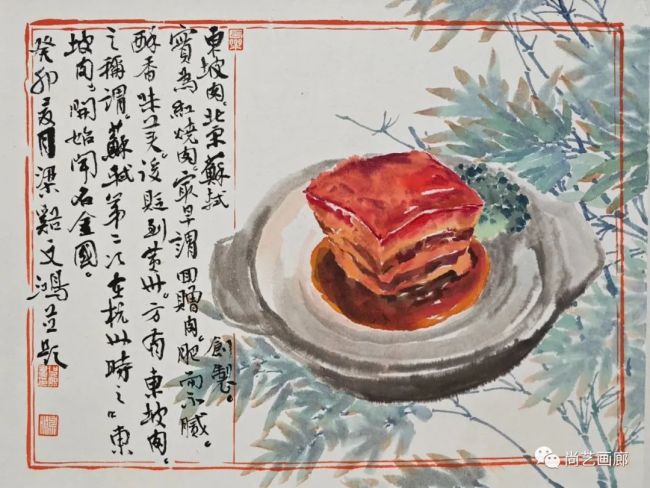 東坡肉。北宋蘇軾創製。
實為紅燒肉最早謂回贈肉。肥而不膩。
酥香味美。後貶到黃州。方有東坡肉。
之稱謂。蘇軾第二次在杭州時之“東
坡肉”開始聞名全國。
癸卯夏月梁谿文鴻並題
尚艺画廊